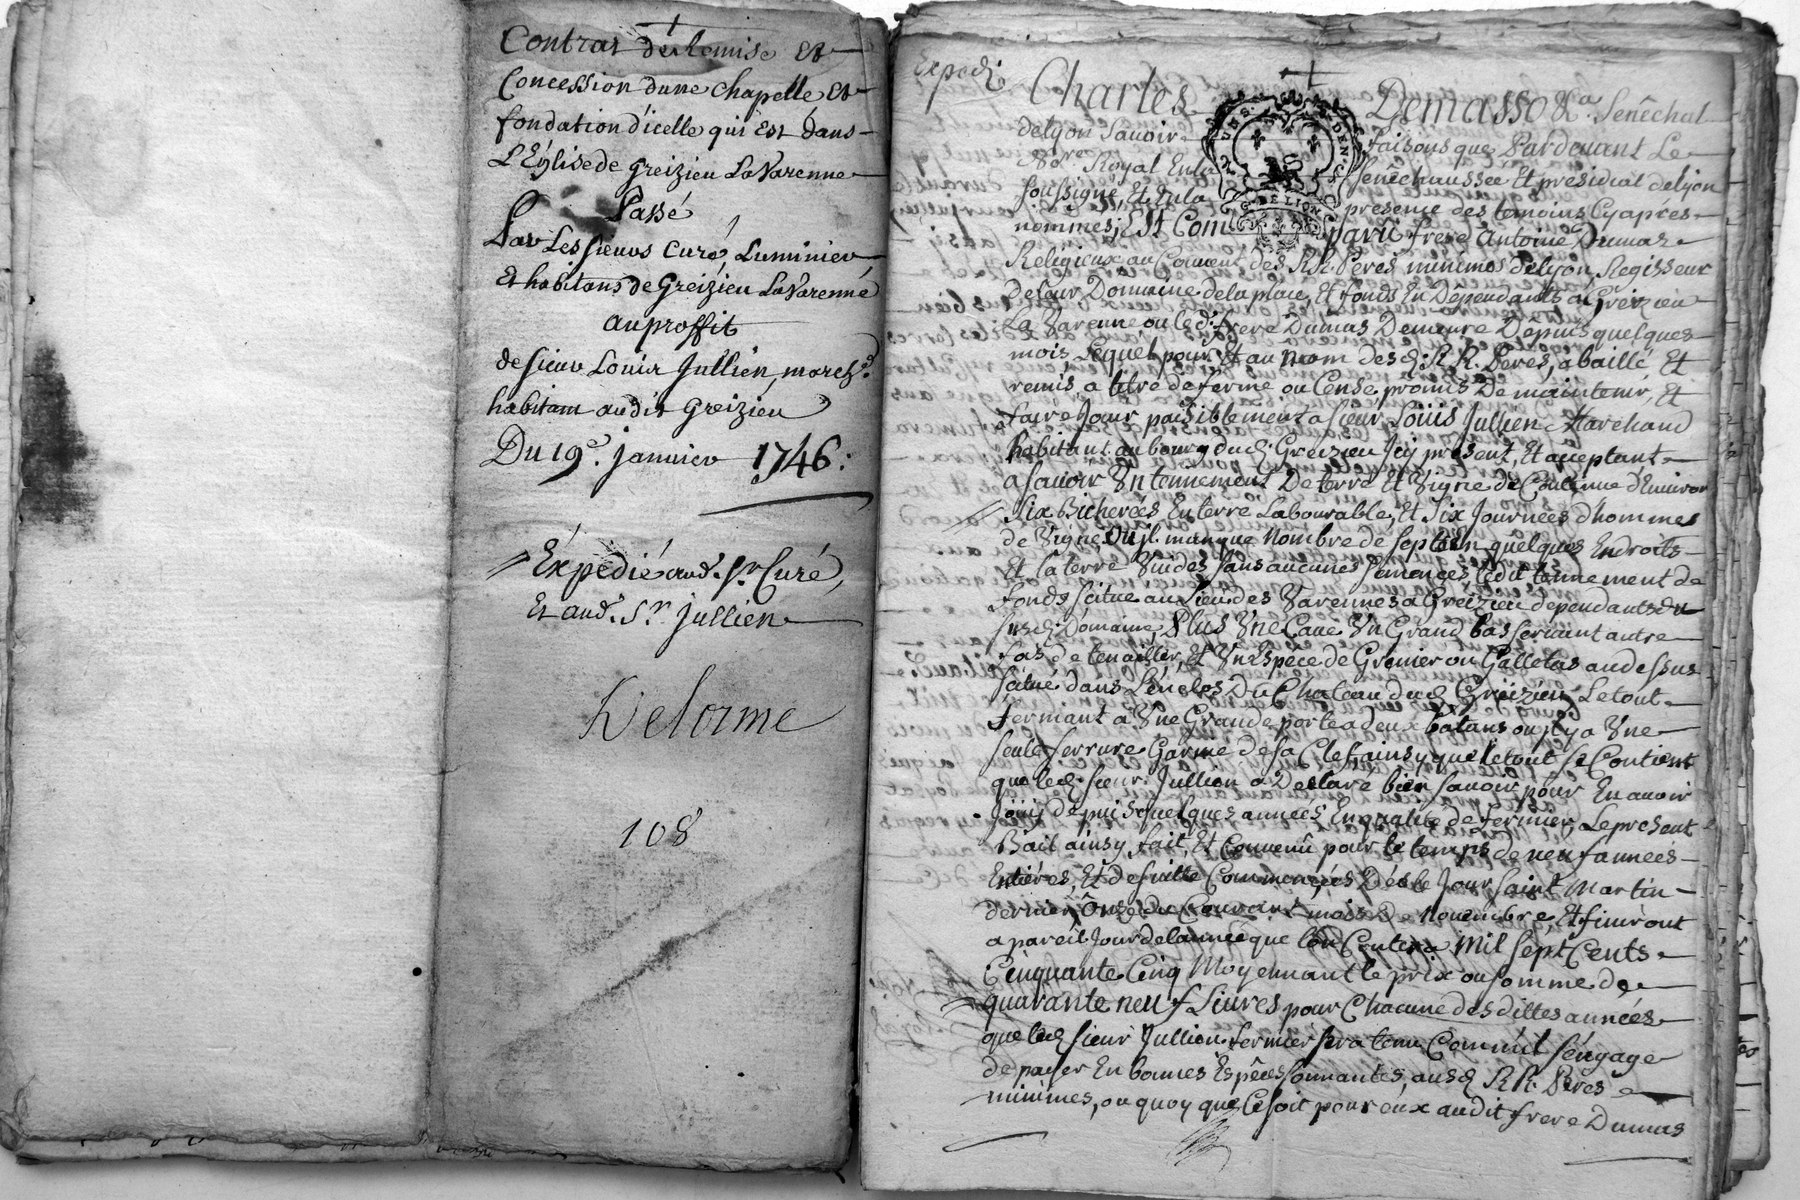 Contrat de Remise Et
Concession dune chapelle Et
fondation d'icelle qui Est dans
L'Église de Greizieu La Varenne
Passé
Par Les sieurs Curé, Luminier
Et habitans de Greizieu La Varenne
au proffit
de sieur Louis Jullien, march.d
habitant audit Greizieu
Du 19.e janvier 1746:
Expedié aud. s.r Curé,
Et aud. S.r Jullien
Delorme
108
Expedi
Charles Demasso &a. Senêchal
de lyon Savoir faisons que Pardevant Le
No.re Royal En la Senêchaussée Et presidial de lyon
soussigné, Et En la presence des temoins Cyaprés
nommes; Est Comparû frere Antoine Dumas
GN. DE LION
Religieux au Couvent des R.R. Peres minimes de lyon, Regisseur
de leur Domaine de la place, Et fonds En Dépendants à Greizieu
La Varenne ou led. frere Dumas Demeure Depuis quelques
mois, Lequel pour Et au Nom desd. R.R. Peres, a baillé, Et
remis, a titre de ferme ou Cense, promis De maintenir, Et
faire Jouir paisiblement a sieur Loüis Jullien Marchand
habitant au bourg dud. Greizieu Icy présent, Et acceptant
a savoir Un tennement De terre Et Vigne de Contenue d'Environ
Six Bicherées En terre Labourable, Et Six Journées d'hommes
de Vigne, Ou Jl manque Nombre de seps En quelques Endroits
Et la terre Vuides Sans aucunes semences, Ledit tennement de
fonds scitué au Lieu des Varennes a Greizieu dependants du
susd. Domaine, Plus Une Cave Un Grand bas servant autre
fois de tenailler, Et Un Espéce de Grenier ou Galletas au dessus
scitué dans L'énclos Du Chateau dud. Greizieu, Le tout
fermant à Une Grande porte a deux batans ou Jl y a Une
seule serrure Garnie de sa Clef ainsy que le tout se Contient
que led. sieur Jullien a Declaré bien savoir pour En avoir
Joüi depuis quelques années En qualité de fermier, Le present
Bail ainsy fait, Et Convenû pour le temps de neuf années
Entiéres, Et de suitte Commencées Dés le Jour saint Martin
dernier Onze du Courant mois De Novembre, Et finiront
a pareil Jour de lannée que lon Contera Mil Sept Cents
Cinquante Cinq Moyennant le prix ou somme de
quarante neuf Livres pour Chacune desdittes années
que led. sieur Jullien fermier sera tenu Comme il s'engage
de payer En bonnes Espêces sonnantes, ausd. R.R. Peres
minimes, ou quoy que Ce soit pour eux audit frere Dumas